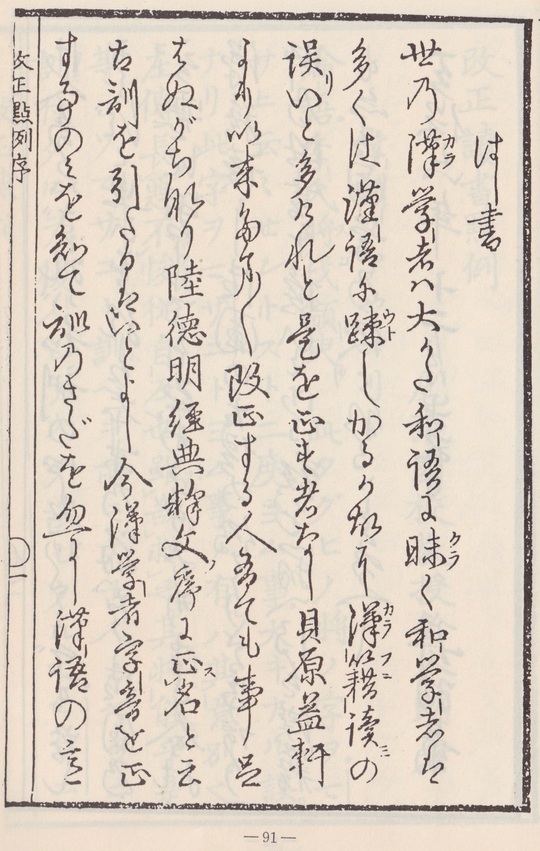 はし書
世乃漢学者ハ大かた和語に昧く和学者は
多くは漢語に踈しかるか故に漢籍読の
誤りいと多けれと是を正す者なし貝原益軒
より以来多少改正する人有ても事足
はぬがち那り陸徳明経典釈文序に正名と云
古訓を引たるはいとよし今漢学者字音を正
するのみを知て訓乃さだを忽にし漢語の意
改正點列序
一
—91—